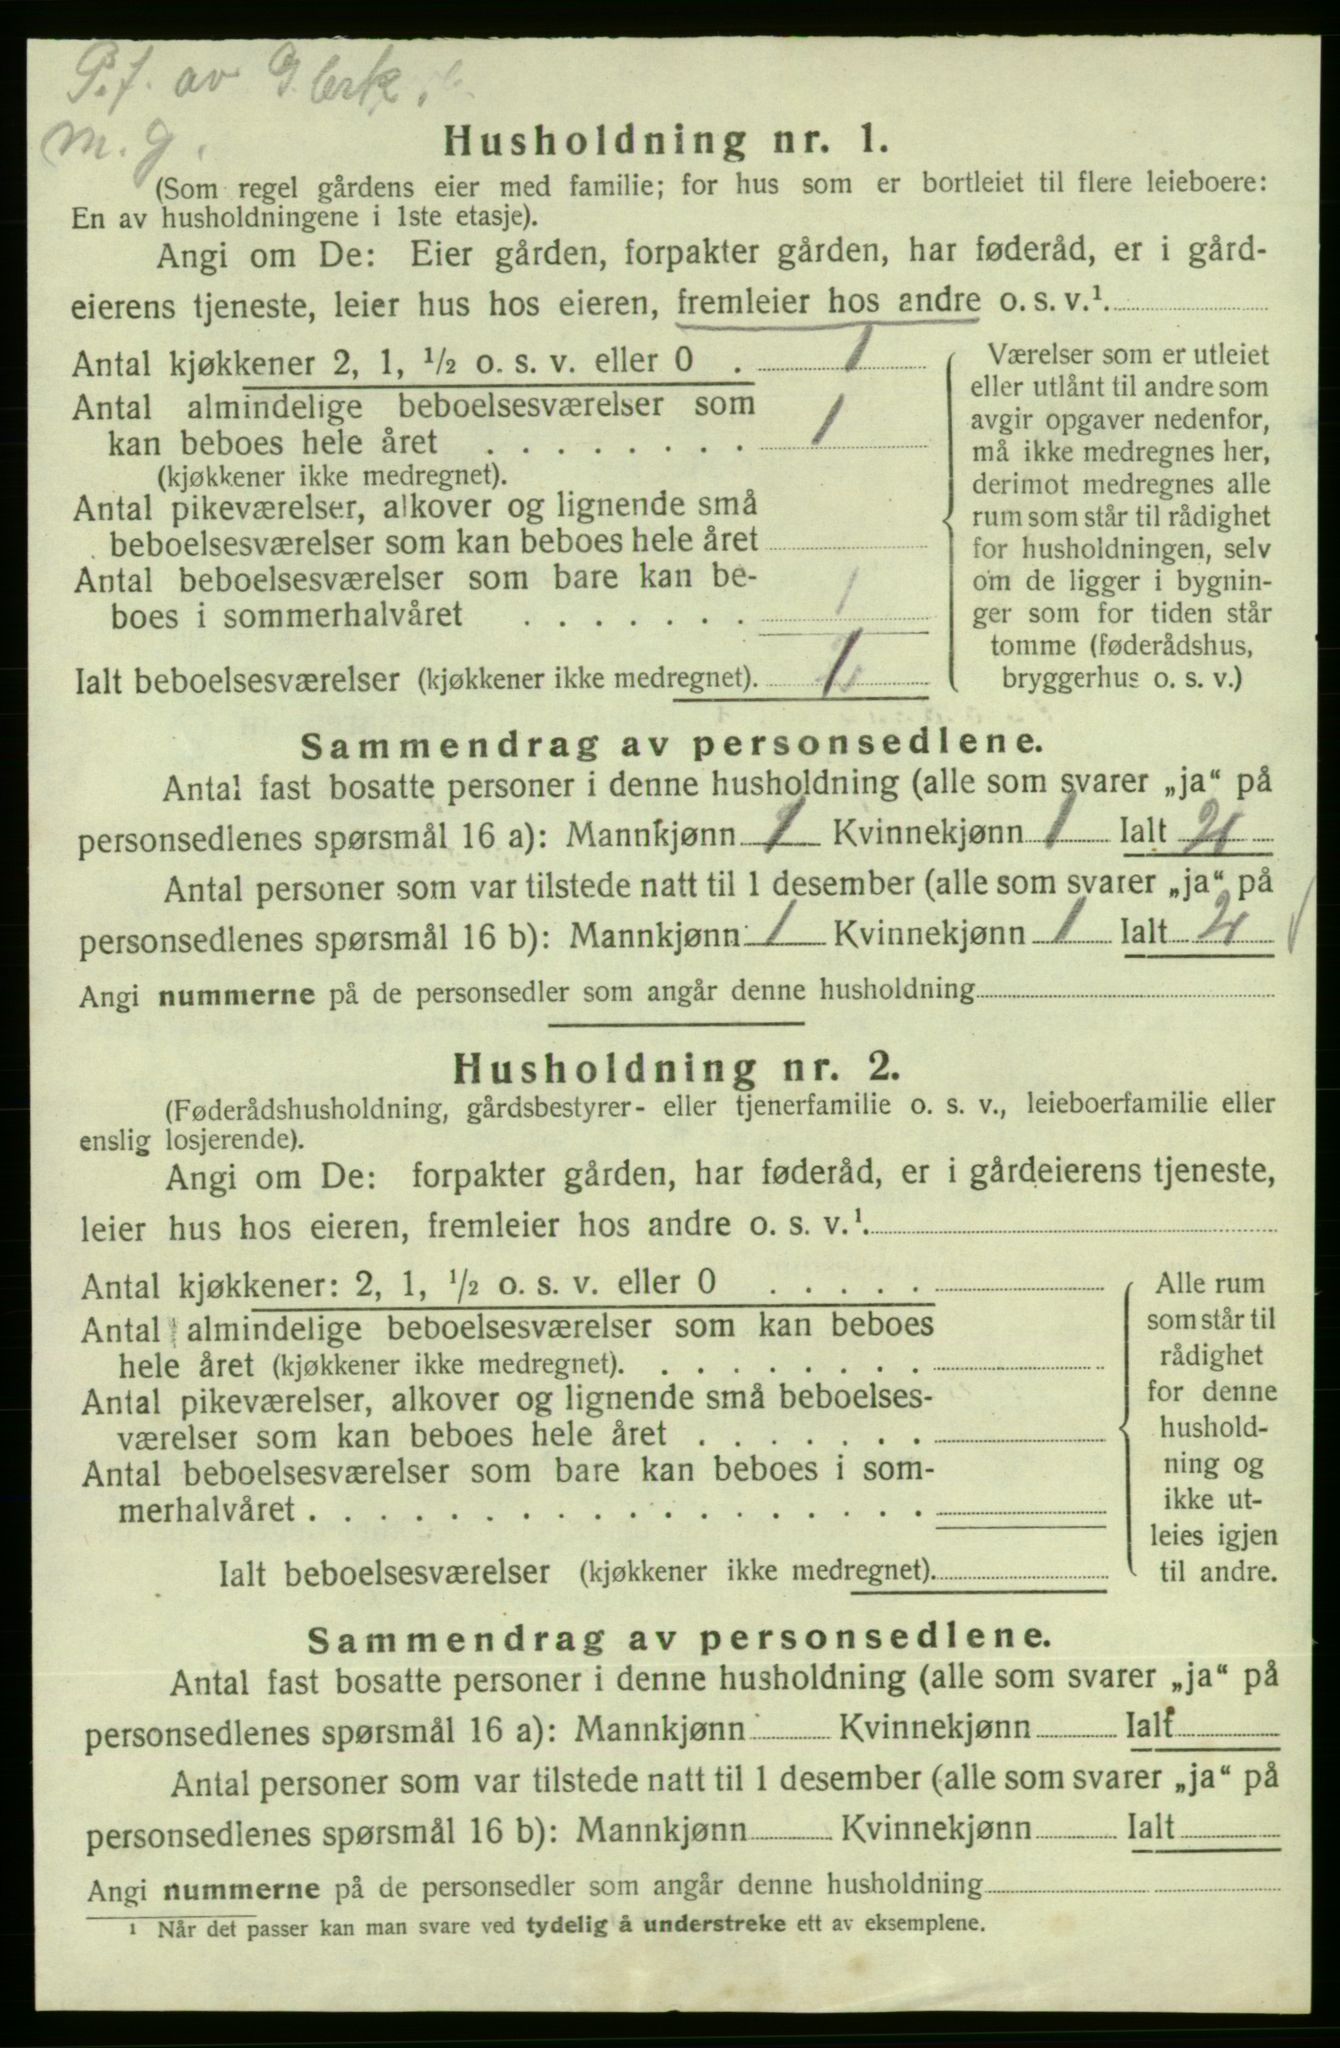 P.f. av
m. g.
Husholdning nr. 1.
(Som regel gårdens eier med familie; for hus som er bortleiet til flere leieboere:
En av husholdningene i 1ste etasje).
Angi om De: Eier gården, forpakter gården, har føderåd, er i gård-
eierens tjeneste, leier hus hos eieren, fremleier hos andre o. s. v.¹.
Antal kjøkkener 2, 1, ½ o. s. v. eller 0 . 1
Antal almindelige beboelsesværelser som
kan beboes hele året . . . . . . . . 1
(kjøkkener ikke medregnet).
Antal pikeværelser, alkover og lignende små
beboelsesværelser som kan beboes hele året
Antal beboelsesværelser som bare kan be-
boes i sommerhalvåret . . . . . . . 1
Ialt beboelsesværelser (kjøkkener ikke medregnet).
Værelser som er utleiet
eller utlånt til andre som
avgir opgaver nedenfor,
må ikke medregnes her,
derimot medregnes alle
rum som står til rådighet
for husholdningen, selv
om de ligger i bygnin-
ger som for tiden står
tomme (føderådshus,
bryggerhus o. s. v.)
Sammendrag av personsedlene.
Antal fast bosatte personer i denne husholdning (alle som svarer „ja“ på
personsedlenes spørsmål 16 a): Mannkjønn 1 Kvinnekjønn 1 Ialt 2
Antal personer som var tilstede natt til 1 desember (alle som svarer „ja“ på
personsedlenes spørsmål 16 b): Mannkjønn 1 Kvinnekjønn 1 Ialt 2
Angi nummerne på de personsedler som angår denne husholdning
Husholdning nr. 2.
(Føderådshusholdning, gårdsbestyrer- eller tjenerfamilie o. s. v., leieboerfamilie eller
enslig losjerende).
Angi om De: forpakter gården, har føderåd, er i gårdeierens tjeneste,
leier hus hos eieren, fremleier hos andre o. s. v.¹.
Antal kjøkkener: 2, 1, ½ o. s. v. eller 0 . . . . .
Antal almindelige beboelsesværelser som kan beboes
hele året (kjøkkener ikke medregnet). . . . . . . . .
Antal pikeværelser, alkover og lignende små beboelses-
værelser som kan beboes hele året . . . . . . .
Antal beboelsesværelser som bare kan beboes i som-
merhalvåret . . . . . . . . . . . . . . . . .
Ialt beboelsesværelser (kjøkkener ikke medregnet).
Alle rum
som står til
rådighet
for denne
hushold-
ning og
ikke ut-
leies igjen
til andre.
Sammendrag av personsedlene.
Antal fast bosatte personer i denne husholdning (alle som svarer „ja“ på
personsedlenes spørsmål 16 a): Mannkjønn Kvinnekjønn Ialt
Antal personer som var tilstede natt til 1 desember (alle som svarer „ja“ på
personsedlenes spørsmål 16 b): Mannkjønn Kvinnekjønn Ialt
Angi nummerne på de personsedler som angår denne husholdning
¹ Når det passer kan man svare ved tydelig å understreke ett av eksemplene.